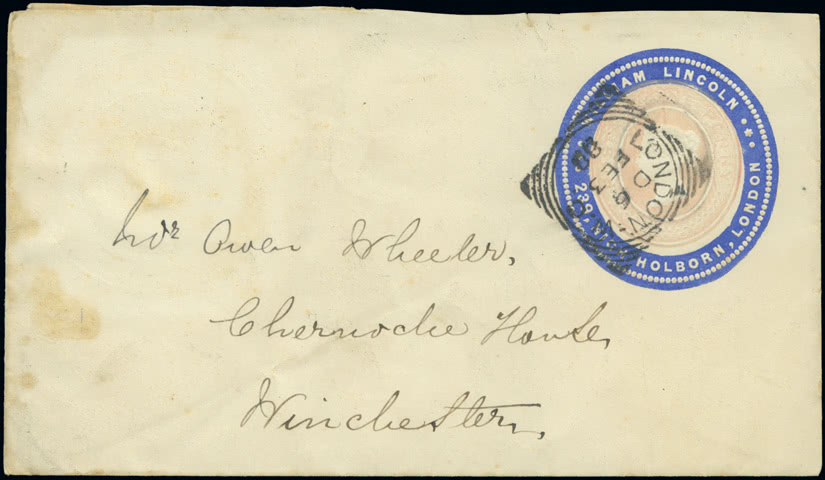 AM LINCOLN
239, HIGH HOLBORN, LONDON
LONDON. N.
D 6
FE 3
88
Mr Owen Wheeler,
Chernocke House,
Winchester.